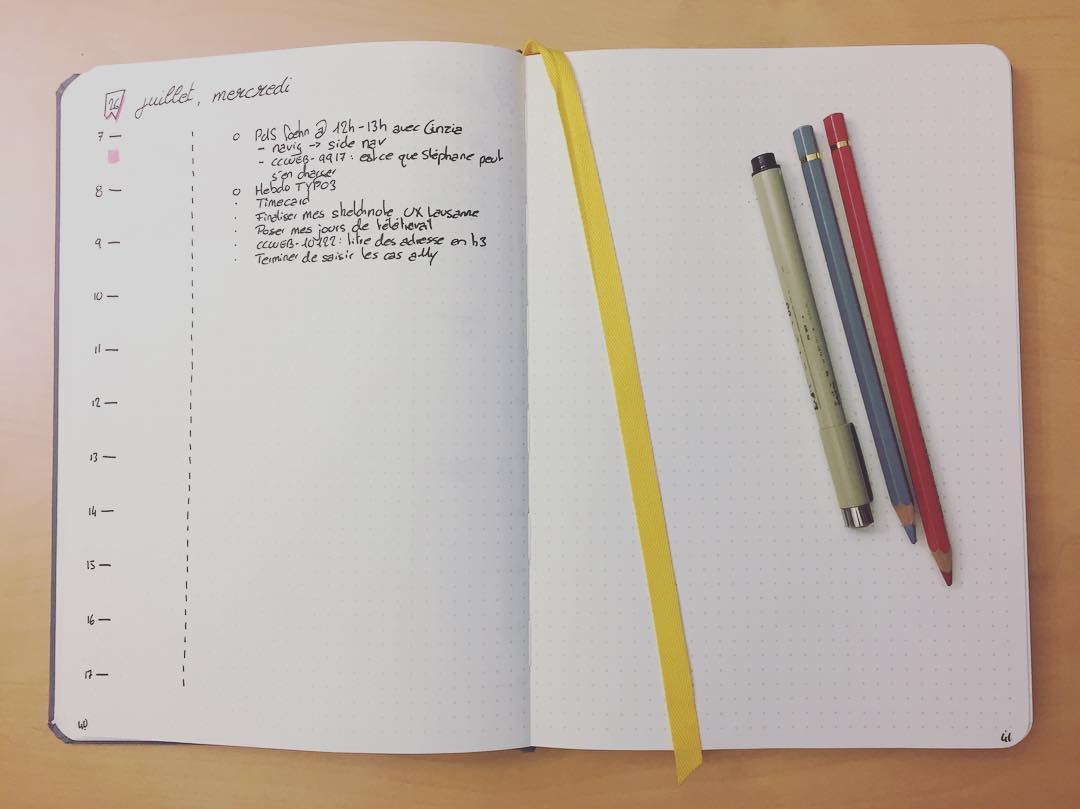 26 juillet, mercredi
7
o PdS Foehn @ 12h-13h avec Cinzia
- navig -> side nav
- CCWEB-9917 : est ce que Stéphane peut
s'en charger
8
o Hebdo TYPO3
· Timecard
· Finaliser mes sketchnote UX Lausanne
· Poser mes jours de télétravail
9
· CCWEB-10122 : titre des adresse en h3
· Terminer de saisir les cas a11y
10
11
12
13
14
15
16
17
40
41